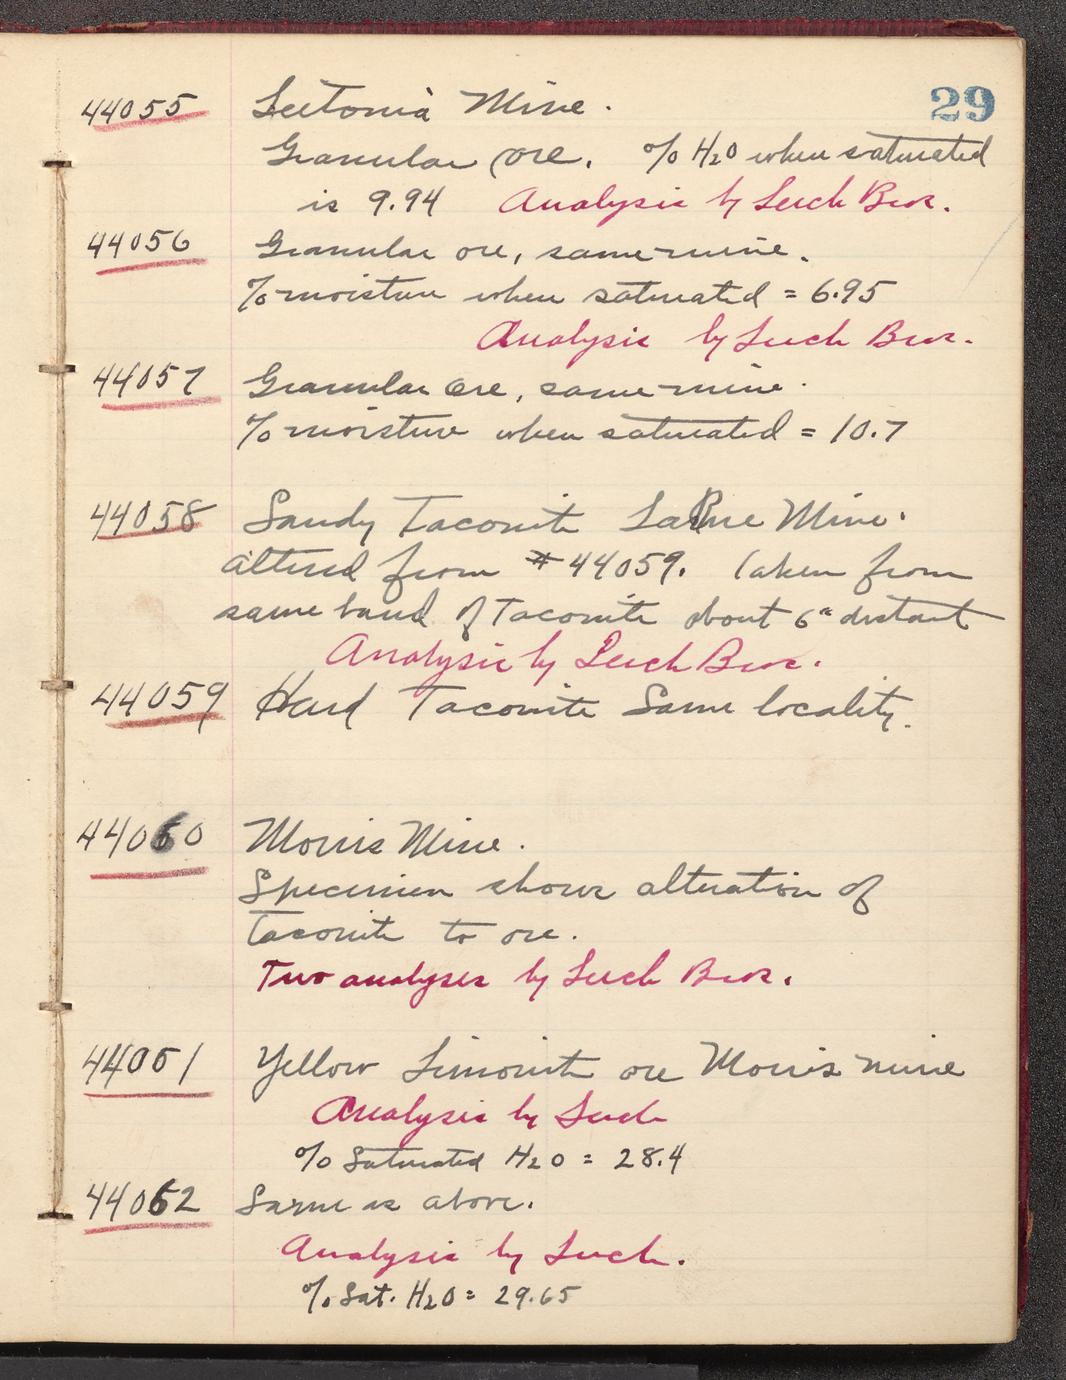 29
44055 Leetonia Mine.
Granular ore. % H2O when saturated
is 9.94 Analysis by Lerch Bros.
44056 Granular ore, same mine.
% moisture when saturated = 6.95
Analysis by Lerch Bros.
44057 Granular Ore, same mine.
% moisture when saturated = 10.7
44058 Sandy Taconite LaRue Mine.
altered from #44059. Taken from
same band of Taconite about 6" distant
Analysis by Lerch Bros.
44059 Hard Taconite Same locality.
44060 Morris Mine.
Specimen shows alteration of
Taconite to ore.
Two analyses by Lerch Bros.
44061 Yellow Limonite ore Morris mine
Analysis by Lerch
% Saturated H2O = 28.4
44062 Same as above.
Analysis by Lerch.
% Sat. H2O = 29.65